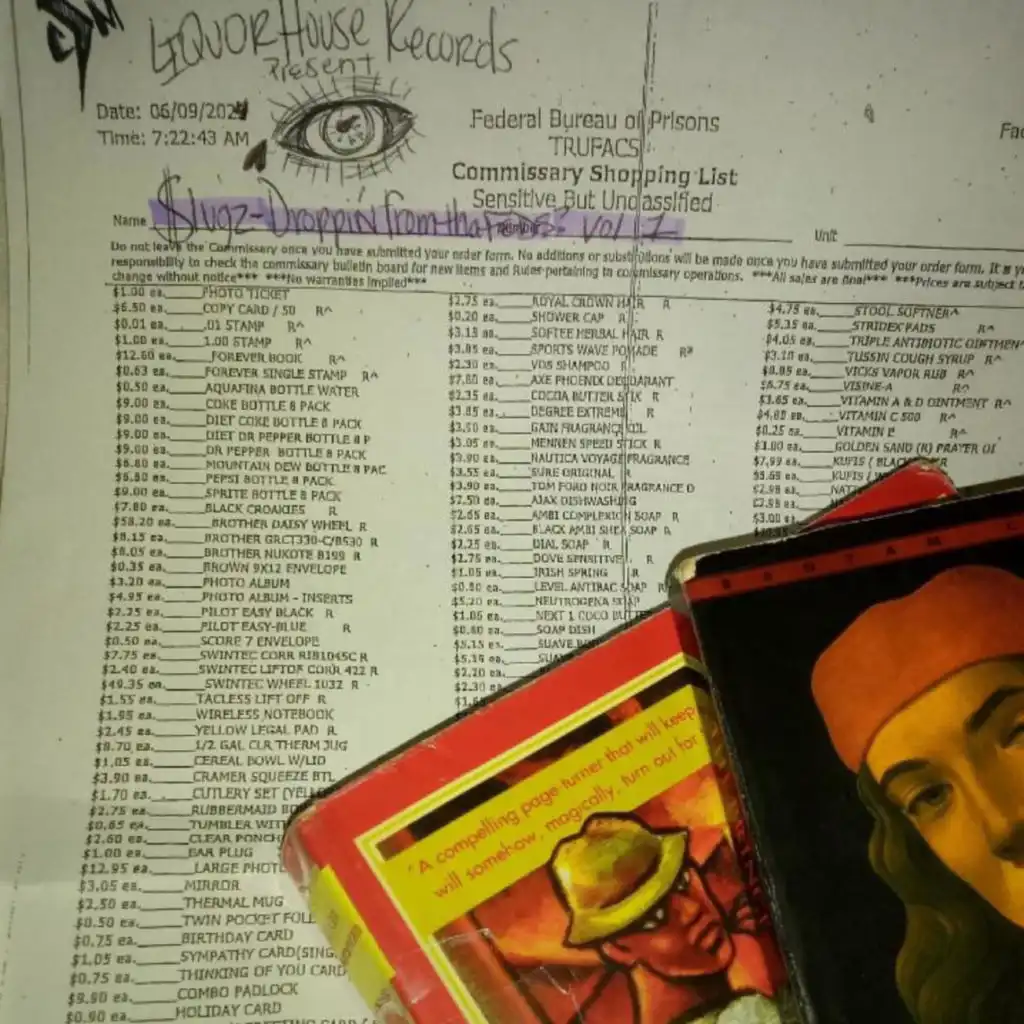 LiQUOR House Records
Present
Date: 06/09/2024
Time: 7:22:43 AM
Federal Bureau of Prisons
TRUFACS
Commissary Shopping List
Sensitive But Unclassified
Fac
Name $lugz-Droppin from tha FEDS: vol 1 Unit
Do not leave the Commissary once you have submitted your order form. No additions or substitutions will be made once you have submitted your order form. It is y
responsibility to check the commissary bulletin board for new items and Rules pertaining to commissary operations. ***All sales are final*** ***Prices are subject t
change without notice*** ***No warranties implied***
$1.00 ea.____PHOTO TICKET
$6.50 ea.____COPY CARD / 50 R^
$0.01 ea.____.01 STAMP R^
$1.00 ea.____1.00 STAMP R^
$12.60 ea.____FOREVER BOOK R^
$0.63 ea.____FOREVER SINGLE STAMP R^
$0.50 ea.____AQUAFINA BOTTLE WATER
$9.00 ea.____COKE BOTTLE 8 PACK
$9.00 ea.____DIET COKE BOTTLE 8 PACK
$9.00 ea.____DIET DR PEPPER BOTTLE 8 P
$9.00 ea.____DR PEPPER BOTTLE 8 PACK
$6.80 ea.____MOUNTAIN DEW BOTTLE 8 PAC
$6.80 ea.____PEPSI BOTTLE 8 PACK
$9.00 ea.____SPRITE BOTTLE 8 PACK
$7.80 ea.____BLACK CROAKIES R
$58.20 ea.____BROTHER DAISY WHEEL R
$8.15 ea.____BROTHER GRCT330-C/B530 R
$8.05 ea.____BROTHER NUKOTE B199 R
$0.35 ea.____BROWN 9X12 ENVELOPE
$3.20 ea.____PHOTO ALBUM
$4.95 ea.____PHOTO ALBUM - INSERTS
$2.25 ea.____PILOT EASY BLACK R
$2.25 ea.____PILOT EASY-BLUE R
$0.50 ea.____SCORE 7 ENVELOPE
$7.75 ea.____SWINTEC CORR RIB1045C R
$2.40 ea.____SWINTEC LIFTOF CORR 422 R
$49.35 ea.____SWINTEC WHEEL 1032 R
$1.55 ea.____TACLESS LIFT OFF R
$1.95 ea.____WIRELESS NOTEBOOK
$2.45 ea.____YELLOW LEGAL PAD R
$8.70 ea.____1/2 GAL CLR THERM JUG
$1.05 ea.____CEREAL BOWL W/LID
$3.90 ea.____CRAMER SQUEEZE BTL
$1.70 ea.____CUTLERY SET (YELLO
$2.75 ea.____RUBBERMAID BO
$0.65 ea.____TUMBLER WIT
$2.60 ea.____CLEAR PONCH
$1.00 ea.____EAR PLUG
$12.95 ea.____LARGE PHOT
$3.05 ea.____MIRROR
$2.50 ea.____THERMAL MUG
$0.50 ea.____TWIN POCKET FOL
$0.75 ea.____BIRTHDAY CARD
$1.05 ea.____SYMPATHY CARD(SING
$0.75 ea.____THINKING OF YOU CARD
$9.90 ea.____COMBO PADLOCK
$0.90 ea.____HOLIDAY CARD
$2.75 ea.____ROYAL CROWN HAIR R
$0.20 ea.____SHOWER CAP R
$3.15 ea.____SOFTEE HERBAL HAIR R
$3.85 ea.____SPORTS WAVE POMADE
$2.30 ea.____VO5 SHAMPOO R
$7.80 ea.____AXE PHOENIX DEODARANT
$2.35 ea.____COCOA BUTTER STIK R
$3.85 ea.____DEGREE EXTREME R
$3.50 ea.____GAIN FRAGRANCE OIL
$3.05 ea.____MENNEN SPEED STICK R
$3.90 ea.____NAUTICA VOYAGE FRAGRANCE
$3.55 ea.____SURE ORIGINAL R
$3.90 ea.____TOM FORD NOIR FRAGRANCE O
$2.50 ea.____AJAX DISHWASHING
$2.65 ea.____AMBI COMPLEXION SOAP R
$2.65 ea.____BLACK AMBI SHEA SOAP R
$2.25 ea.____DIAL SOAP R
$2.75 ea.____DOVE SENSITIVE R
$1.05 ea.____IRISH SPRING R
$0.80 ea.____LEVEL ANTIBAC SOAP R
$5.20 ea.____NEUTROGENA SOAP
$1.06 ea.____NEXT 1 COCO BUTTE
$0.60 ea.____SOAP DISH
$5.15 ea.____SUAVE BO
$5.15 ea.____SUAV
$2.20 ea.
$2.30 ea.
$4.75 ea.____STOOL SOFTNER^
$5.35 ea.____STRIDEX PADS R^
$4.05 ea.____TRIPLE ANTIBIOTIC OINTMEN
$3.10 ea.____TUSSIN COUGH SYRUP R^
$8.95 ea.____VICKS VAPOR RUB R^
$6.75 ea.____VISINE-A R^
$3.65 ea.____VITAMIN A & D OINTMENT R^
$4.80 ea.____VITAMIN C 500 R^
$8.25 ea.____VITAMIN E R^
$3.00 ea.____GOLDEN SAND (R) PRAYER OI
$7.99 ea.____KUFIS ( BLACK
$5.65 ea.____KUFIS / W
$2.95 ea.____NAT
$2.95 ea.
$3.00 ea.
BANTAM
"A compelling page turner that will keep
will somehow, magically, turn out for